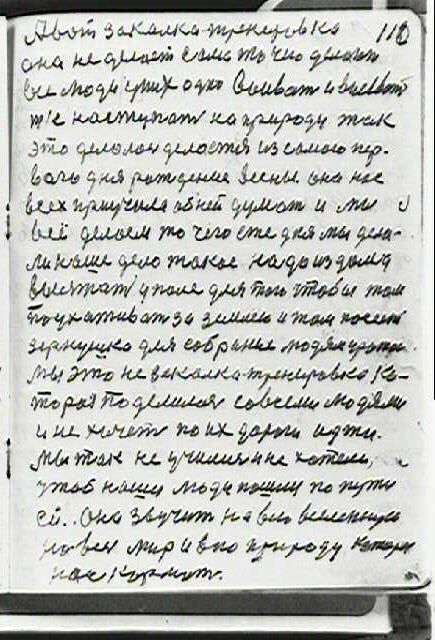 А вот закалка-тренировка 110
она не делает само то что делают
все люди у них одно воеват и воеват
т/е наступат на природу так
это делалос делается из самого пер-
вого дня рождение весны она нас
всех приучила об ней думат и мы
всё делаем то чего эти дня мы дела-
ли наше дело такое надо из дома
выезжат у поле для того чтобы там
поухаживат за землею и там посеят
зернушко для собрание людям
Мы это не закалка-тренировка ко-
торая поделилас со всеми людями
и не хочет по их дороги идти.
Мы так не училися и не хотели,
чтоб наши люди пошли по пути
ей.. Она звучит на всю вселенную
на вес мир и всю природу которая
нас кормит.